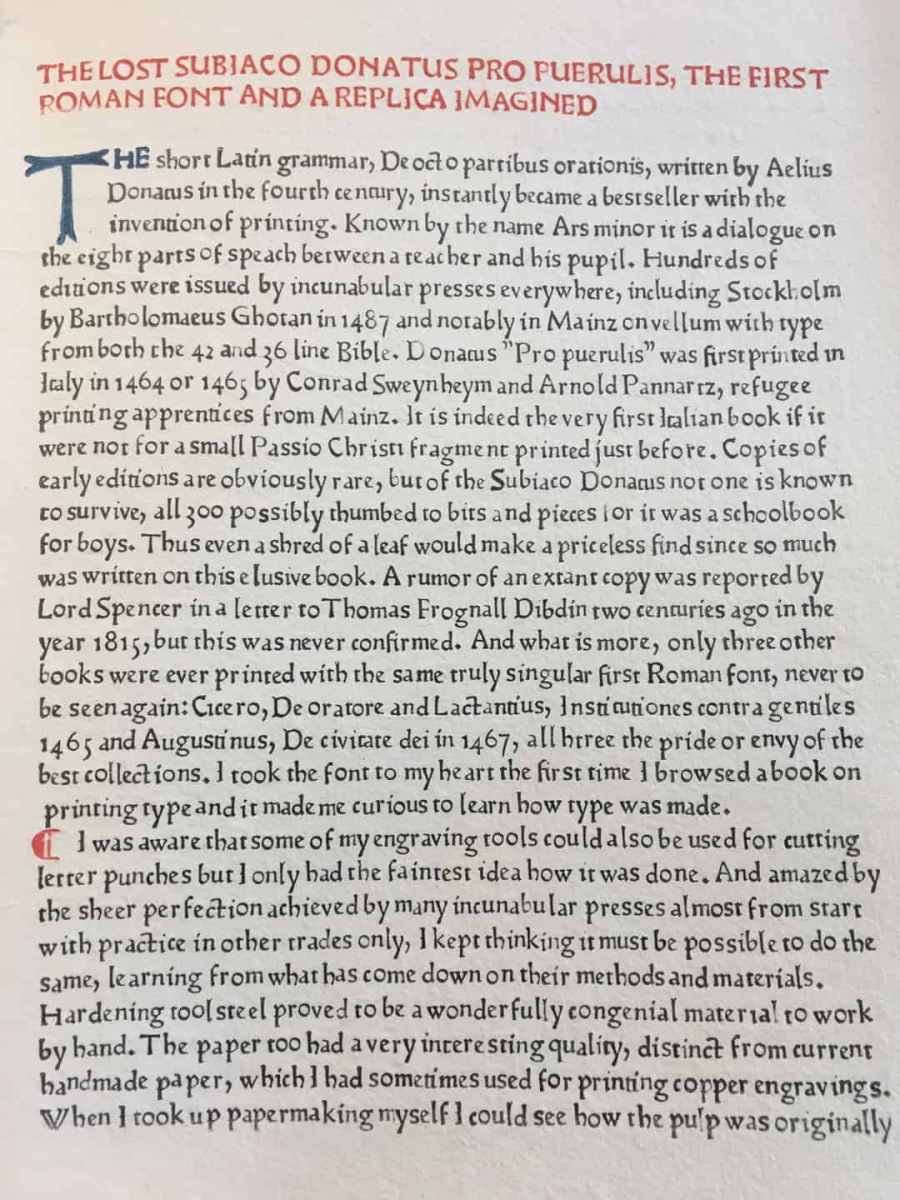 THE LOST SUBIACO DONATUS PRO PUERULIS, THE FIRST
ROMAN FONT AND A REPLICA IMAGINED
THE short Latin grammar, De octo partibus orationis, written by Aelius
Donatus in the fourth century, instantly became a bestseller with the
invention of printing. Known by the name Ars minor it is a dialogue on
the eight parts of speach between a teacher and his pupil. Hundreds of
editions were issued by incunabular presses everywhere, including Stockholm
by Bartholomaeus Ghotan in 1487 and notably in Mainz on vellum with type
from both the 42 and 36 line Bible. Donatus "Pro puerulis" was first printed in
Italy in 1464 or 1465 by Conrad Sweynheym and Arnold Pannartz, refugee
printing apprentices from Mainz. It is indeed the very first Italian book if it
were not for a small Passio Christi fragment printed just before. Copies of
early editions are obviously rare, but of the Subiaco Donatus not one is known
to survive, all 300 possibly thumbed to bits and pieces for it was a schoolbook
for boys. Thus even a shred of a leaf would make a priceless find since so much
was written on this elusive book. A rumor of an extant copy was reported by
Lord Spencer in a letter to Thomas Frognall Dibdin two centuries ago in the
year 1815, but this was never confirmed. And what is more, only three other
books were ever printed with the same truly singular first Roman font, never to
be seen again: Cicero, De oratore and Lactantius, Institutiones contra gentiles
1465 and Augustinus, De civitate dei in 1467, all htree the pride or envy of the
best collections. I took the font to my heart the first time I browsed a book on
printing type and it made me curious to learn how type was made.
¶ I was aware that some of my engraving tools could also be used for cutting
letter punches but I only had the faintest idea how it was done. And amazed by
the sheer perfection achieved by many incunabular presses almost from start
with practice in other trades only, I kept thinking it must be possible to do the
same, learning from what has come down on their methods and materials.
Hardening tool steel proved to be a wonderfully congenial material to work
by hand. The paper too had a very interesting quality, distinct from current
handmade paper, which I had sometimes used for printing copper engravings.
When I took up papermaking myself I could see how the pulp was originally